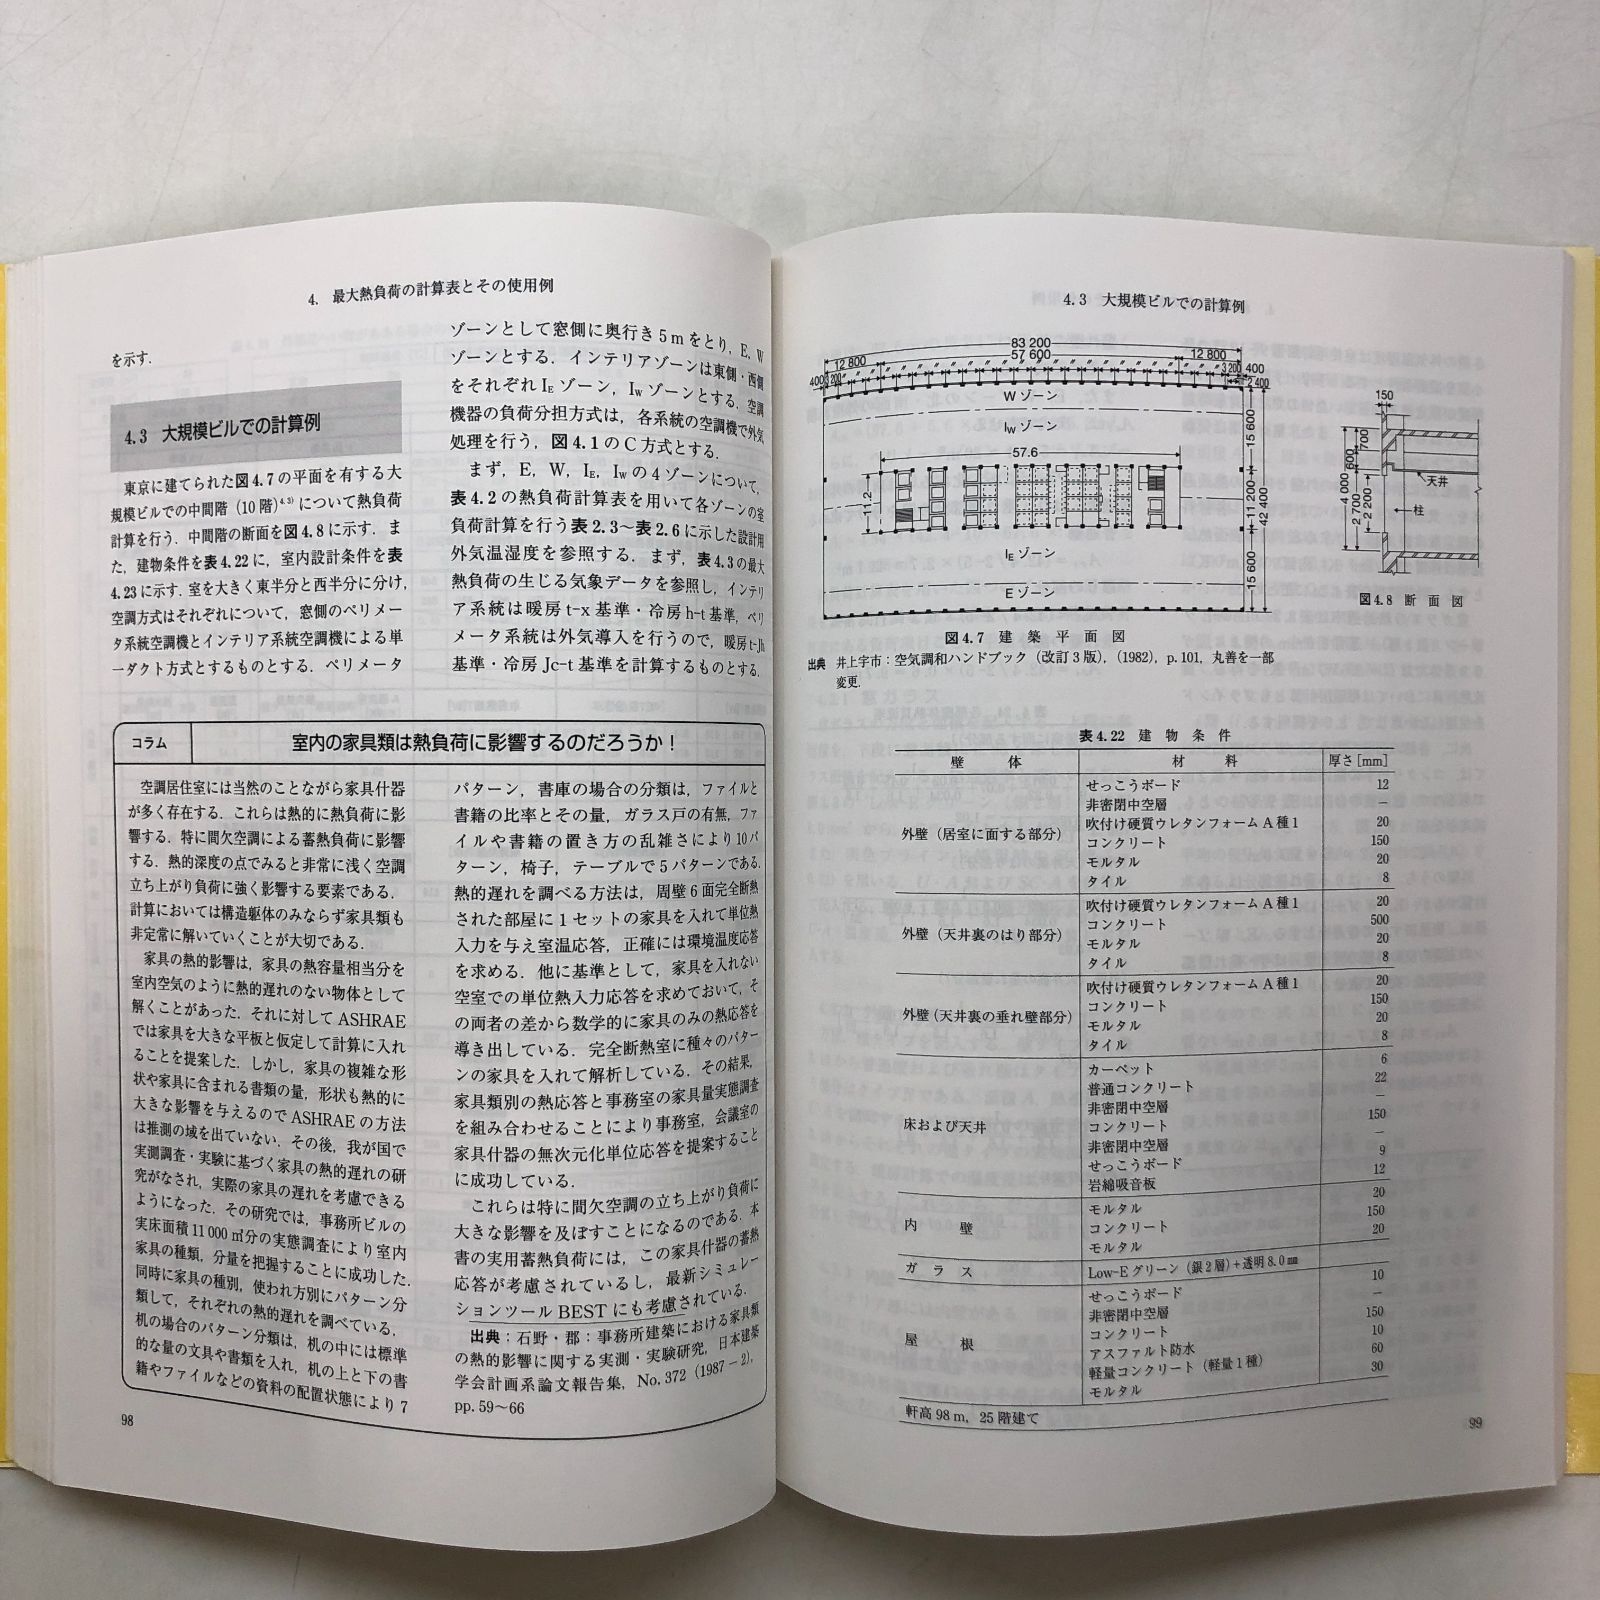 4. 最大熱負荷の計算表とその使用例
を示す.
4.3 大規模ビルでの計算例
東京に建てられた図4.7の平面を有する大
規模ビルでの中間階 (10階)4.3) について熱負荷
計算を行う. 中間階の断面を図4.8に示す. ま
た, 建物条件を表4.22に, 室内設計条件を表
4.23に示す. 室を大きく東半分と西半分に分け,
空調方式はそれぞれについて, 窓側のペリメー
タ系統空調機とインテリア系統空調機による単
一ダクト方式とするものとする. ペリメータ
ゾーンとして窓側に奥行き5mをとり, E, W
ゾーンとする. インテリアゾーンは東側・西側
をそれぞれIEゾーン, IWゾーンとする. 空調
機器の負荷分担方式は, 各系統の空調機で外気
処理を行う, 図4.1のC方式とする.
まず, E, W, IE, IWの4ゾーンについて,
表4.2の熱負荷計算表を用いて各ゾーンの室
負荷計算を行う表2.3〜表2.6に示した設計用
外気温湿度を参照する. まず, 表4.3の最大
熱負荷の生じる気象データを参照し, インテリ
ア系統は暖房t-x基準・冷房h-t基準, ペリ
メータ系統は外気導入を行うので, 暖房t-Jh
基準・冷房Jc-t基準を計算するものとする.
コラム 室内の家具類は熱負荷に影響するのだろうか!
空調居住室には当然のことながら家具什器
が多く存在する. これらは熱的に熱負荷に影
響する. 特に間欠空調による蓄熱負荷に影響
する. 熱的深度の点でみると非常に浅く空調
立ち上がり負荷に強く影響する要素である.
計算においては構造躯体のみならず家具類も
非定常に解いていくことが大切である.
家具の熱的影響は, 家具の熱容量相当分を
室内空気のように熱的遅れのない物体として
解くことがあった. それに対してASHRAE
では家具を大きな平板と仮定して計算に入れ
ることを提案した. しかし, 家具の複雑な形
状や家具に含まれる書類の量, 形状も熱的に
大きな影響を与えるのでASHRAEの方法
は推測の域を出ていない. その後, 我が国で
実測調査・実験に基づく家具の熱的遅れの研
究がなされ, 実際の家具の遅れを考慮できる
ようになった. その研究では, 事務所ビルの
実床面積11000㎡分の実態調査により室内
家具の種類, 分量を把握することに成功した.
同時に家具の種別, 使われ方別にパターン分
類して, それぞれの熱的遅れを調べている.
机の場合のパターン分類は, 机の中には標準
的な量の文具や書類を入れ, 机の上と下の書
籍やファイルなどの資料の配置状態により7
パターン, 書庫の場合の分類は, ファイルと
書籍の比率とその量, ガラス戸の有無, ファ
イルや書籍の置き方の乱雑さにより10パ
ターン, 椅子, テーブルで5パターンである.
熱的遅れを調べる方法は, 周壁6面完全断熱
された部屋に1セットの家具を入れて単位熱
入力を与え室温応答, 正確には環境温度応答
を求める. 他に基準として, 家具を入れない
空室での単位熱入力応答を求めておいて, そ
の両者の差から数学的に家具のみの熱応答を
導き出している. 完全断熱室に種々のパター
ンの家具を入れて解析している. その結果,
家具類別の熱応答と事務室の家具量実態調査
を組み合わせることにより事務室, 会議室の
家具什器の無次元化単位応答を提案すること
に成功している.
これらは特に間欠空調の立ち上がり負荷に
大きな影響を及ぼすことになるのである. 本
書の実用蓄熱負荷には, この家具什器の蓄熱
応答が考慮されているし, 最新シミュレー
ションツールBESTにも考慮されている.
出典：石野・郡：事務所建築における家具類
の熱的影響に関する実測・実験研究, 日本建築
学会計画系論文報告集, No.372 (1987-2),
pp.59〜66
98
4.3 大規模ビルでの計算例
83 200
12 800 57 600 12 800
400 3 200 3 200 400
2 400
Wゾーン
IWゾーン
57.6
11.2
IEゾーン
Eゾーン
15 600
11 200
15 600
42 400
図4.7 建築平面図
150
700
600
4 000
2 700
2 200
天井
柱
図4.8 断面図
出典 井上宇市：空気調和ハンドブック (改訂3版), (1982), p.101, 丸善を一部
変更.
表4.22 建物条件
壁体 材料 厚さ[mm]
外壁 (居室に面する部分)
せっこうボード 12
非密閉中空層 −
吹付け硬質ウレタンフォームA種1 20
コンクリート 150
モルタル 20
タイル 8
外壁 (天井裏のはり部分)
吹付け硬質ウレタンフォームA種1 20
コンクリート 500
モルタル 20
タイル 8
外壁 (天井裏の垂れ壁部分)
吹付け硬質ウレタンフォームA種1 20
コンクリート 150
モルタル 20
タイル 8
床および天井
カーペット 6
普通コンクリート 22
非密閉中空層 −
コンクリート 150
非密閉中空層 −
せっこうボード 9
岩綿吸音板 12
内壁
モルタル 20
コンクリート 150
モルタル 20
ガラス Low-Eグリーン (銀2層)+透明8.0㎜
屋根
せっこうボード 10
非密閉中空層 −
コンクリート 150
アスファルト防水 10
軽量コンクリート (軽量1種) 60
モルタル 30
軒高98m, 25階建て
99